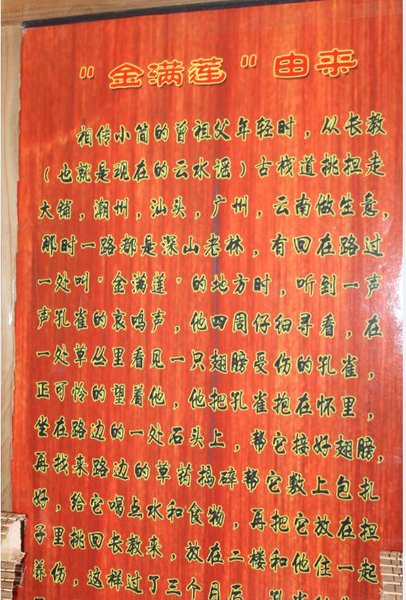 "金满莲"由来
相传小简的曾祖父年轻时，从长教
（也就是现在的云水谣）古栈道挑担走
大铺，潮州，汕头，广州，云南做生意，
那时一路都是深山老林，有回在路过
一处叫"金满莲"的地方时，听到一声
声孔雀的哀鸣声，他四周仔细寻看，在
一处草丛里看见一只翅膀受伤的孔雀，
正可怜的望着他，他把孔雀抱在怀里，
坐在路边的一处石头上，帮它接好翅膀，
再找来路边的草药捣碎帮它敷上包扎
好，给它喝点水和食物，再把它放在担
子里挑回长教来，放在二楼和他住一起
养伤，这样过了三个月后，孔雀